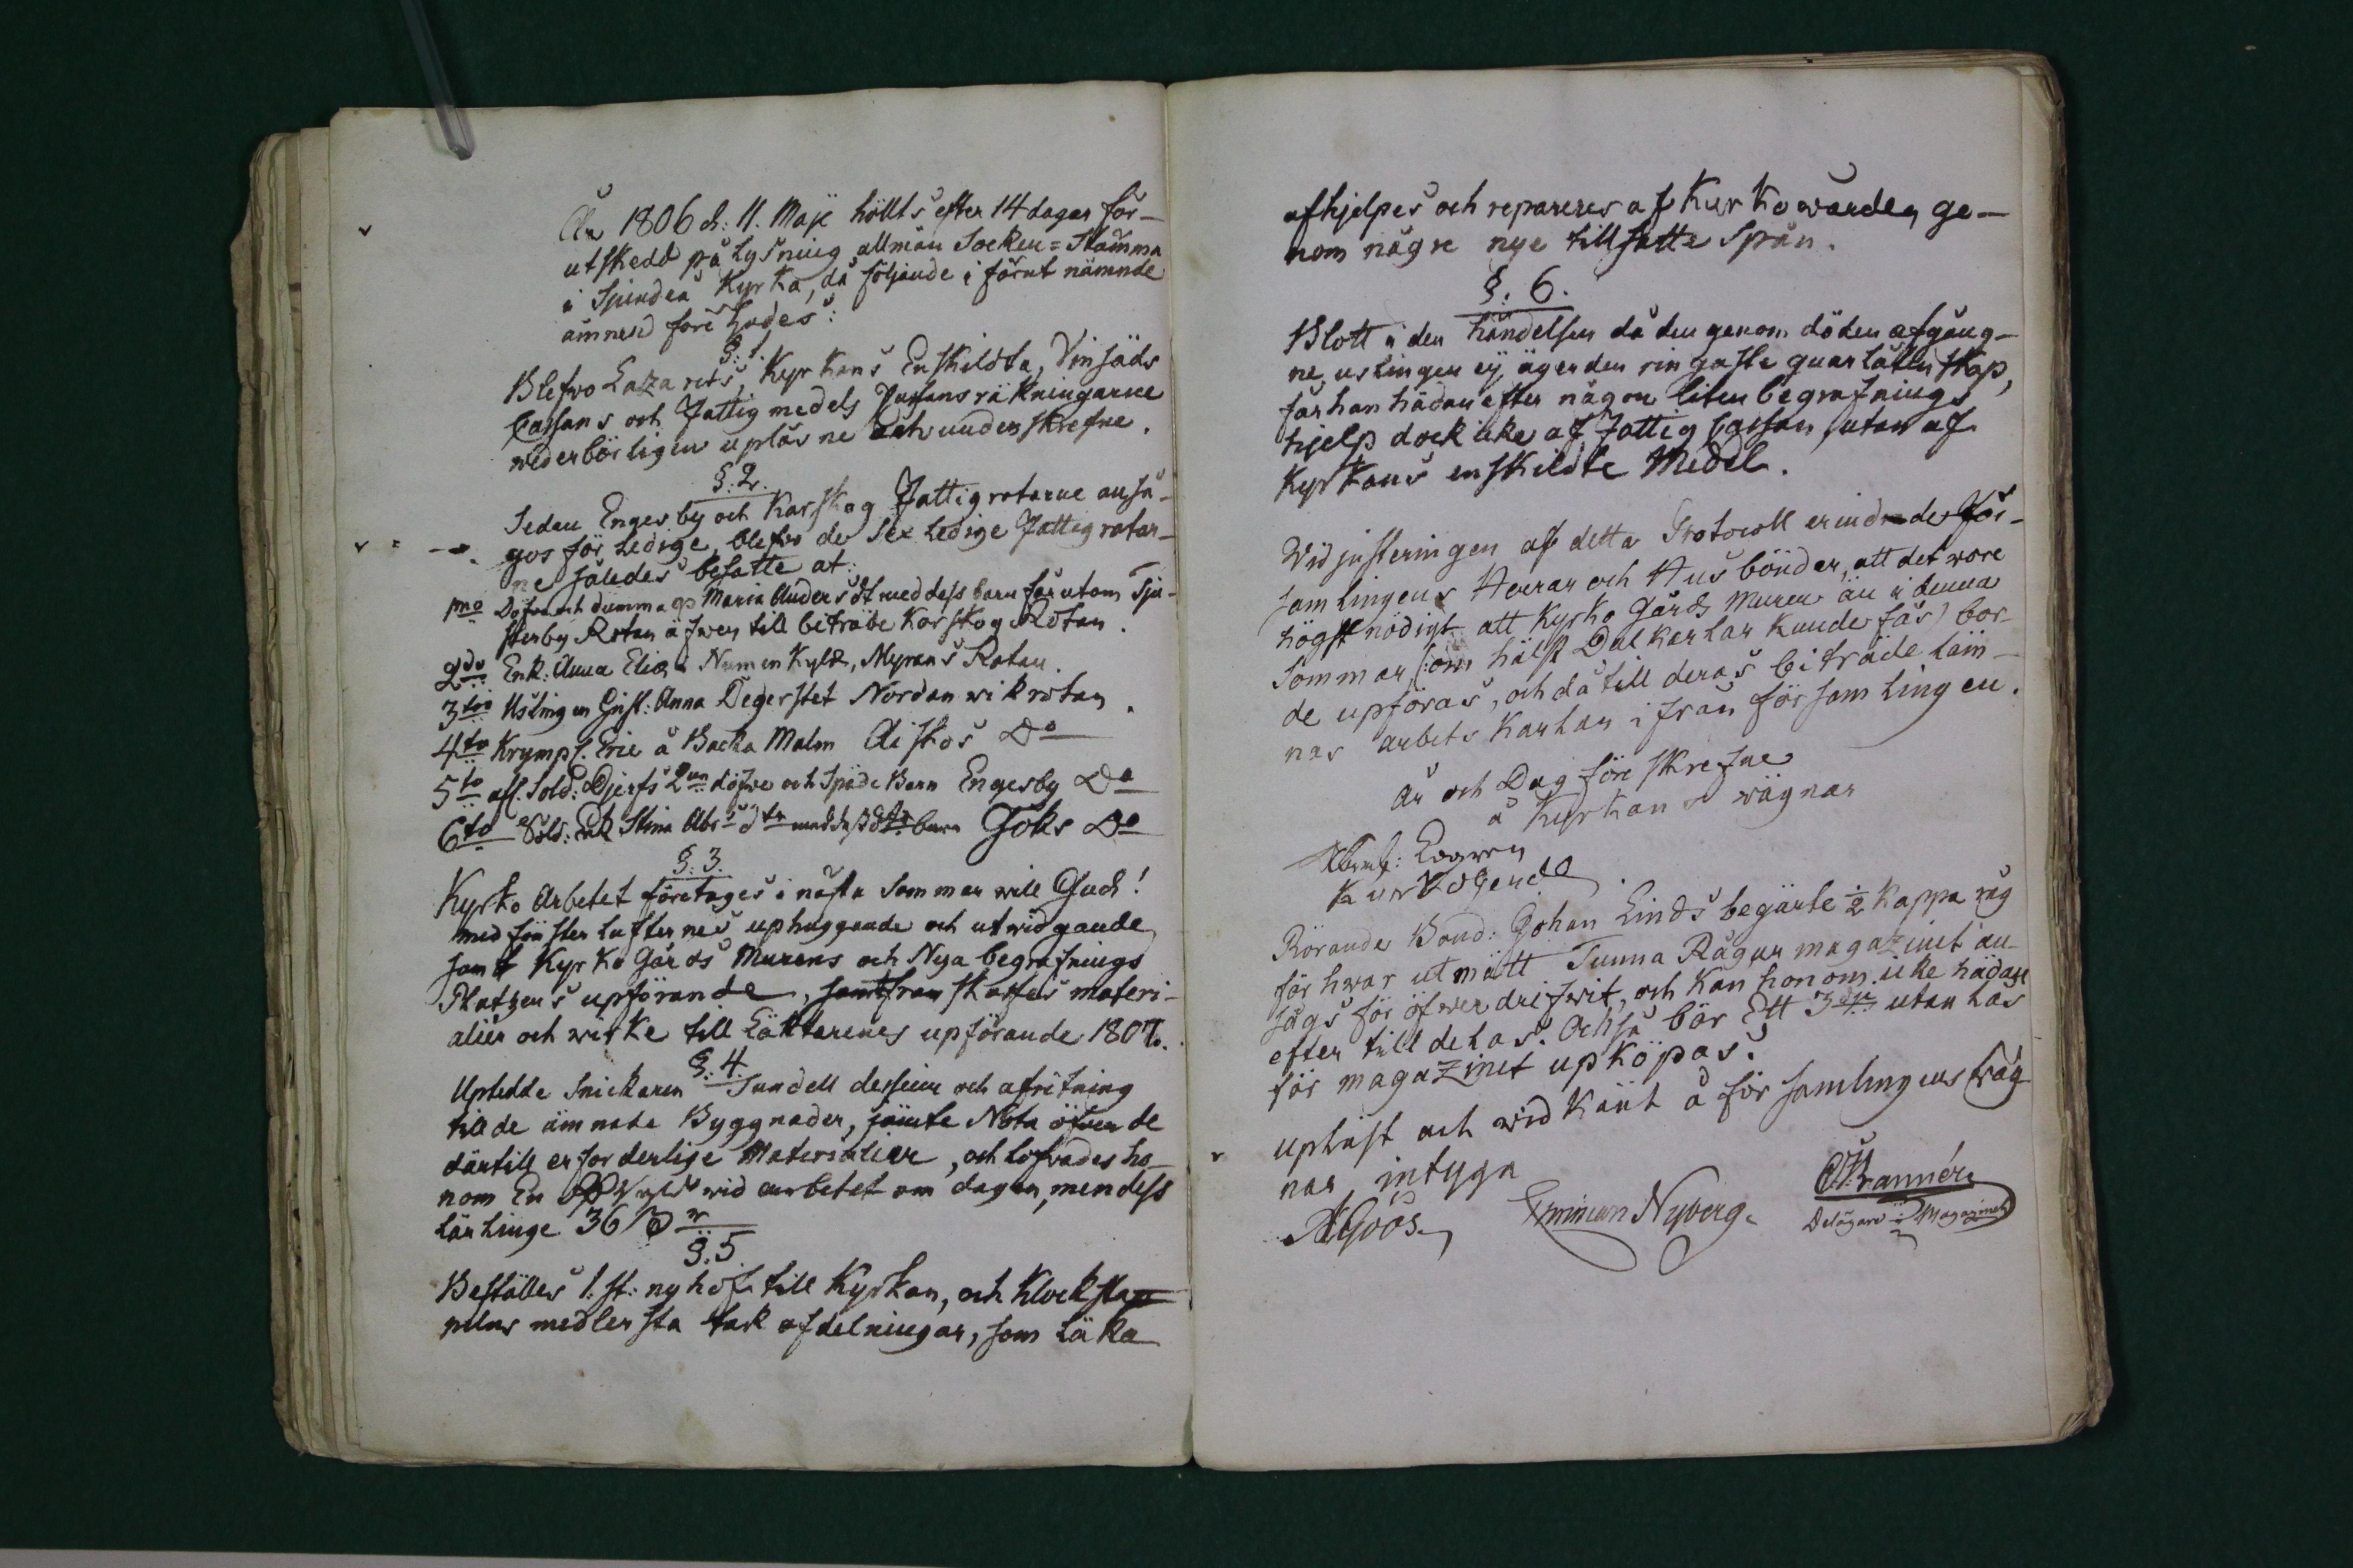 År 1806 d: 11. Maji höllts efter 14 dagar för-
utskedd pålysning allmän Socken=Stämma
i Spinden Kyrka, då följande i förut nämnde
ämnen förehades:
§: 1.
Blefvo Lazarets, Kyrkans Enskildta, Vinsäds
Cassans och Fattigmedels Cassans räkningarne
wederbörligen upläsne och underskrefne.
§: 2.
Sedan Engesby och Karskog Fattigrotarne anså-
gos för Ledige, blefvo de Sex Ledige Fattigrotar-
ne således besatte at:
1mo Döfva och dumma Maria Anders dr med dess barn förutom Sju-
sterby Rotan äfwen till biträde Karskog Rotan.
2do Enk: Anna Elis: Myrans Rotan.
3tio Uslingen Gust: Anna Degerstet Nordanwik rotan.
4to Krympl. Eric å Backa Malm Aiskos Do
5to afl. Sold: Djerfs 2ne döfve och späde Barn Engesby Do
6to Sold: Enk Stina Abr:s dtr med dess barn Göks Do
§: 3.
Kyrko Arbetet företages i nästa Sommar will Gud!
med fönster lufternes uphuggande och utwidgande,
samt Kyrko Gårds Murens och Nya begrafnings
Platzens upförande, samt framskaffas materi-
alier och wirke till Läktarenes upförande 1807.
§: 4.
Uptedde Snickaren Sundell desseine och afritning
till de ämnade Byggnader, jämte Nota öfver de
därtill erforderlige Materialier, och lofvades ho-
nom En wid arbetet om dagen, men dess
lärlinge 36 ß
§. 5.
Beställes 1. st: ny håf till Kyrkan, och Klockstap-
pelns medlersta tak afdelningar, som läka
afhjelpes och repareres af Kyrkowärden ge-
nom någre nye tillsatte Spån.
§: 6.
Blott i den händelsen då den genom döden afgång-
ne uslingen ej äger den ringaste quarlåtenskap,
får han hädanefter någon liten begrafnings
hjelp dock icke af Fattig Cassan, utan af
Kyrkans enskildte Medel.
Vid justeringen af detta Protocoll erindrade För-
samlingens Herrar och Husbönder, att det wore
högst nödigt att Kyrko Gårds Muren än i denna
Sommar (: om hälst Dalkarlar kunde fås) bor-
de upföras, och då till deras biträde läm-
nas arbets Karlar ifrån församlingen.
År och Dag före skrefne
å Kyrkans wägnar
Kyrkoherde
Rörande Bond: Johan Linds begärte ½ kappa råg
för hwar utmätt Tunna Råg ur magazinet an-
sågs för öfwerdrifwit, och kan honom icke hädan-
efter tilldelas. Också bör Ett utan lås
för magazinet upköpas.
Upläst och widkänt å församlingens wäg-
nar, intyga
A Göös. Nyberg. Brannér
Delägare i Magazinet